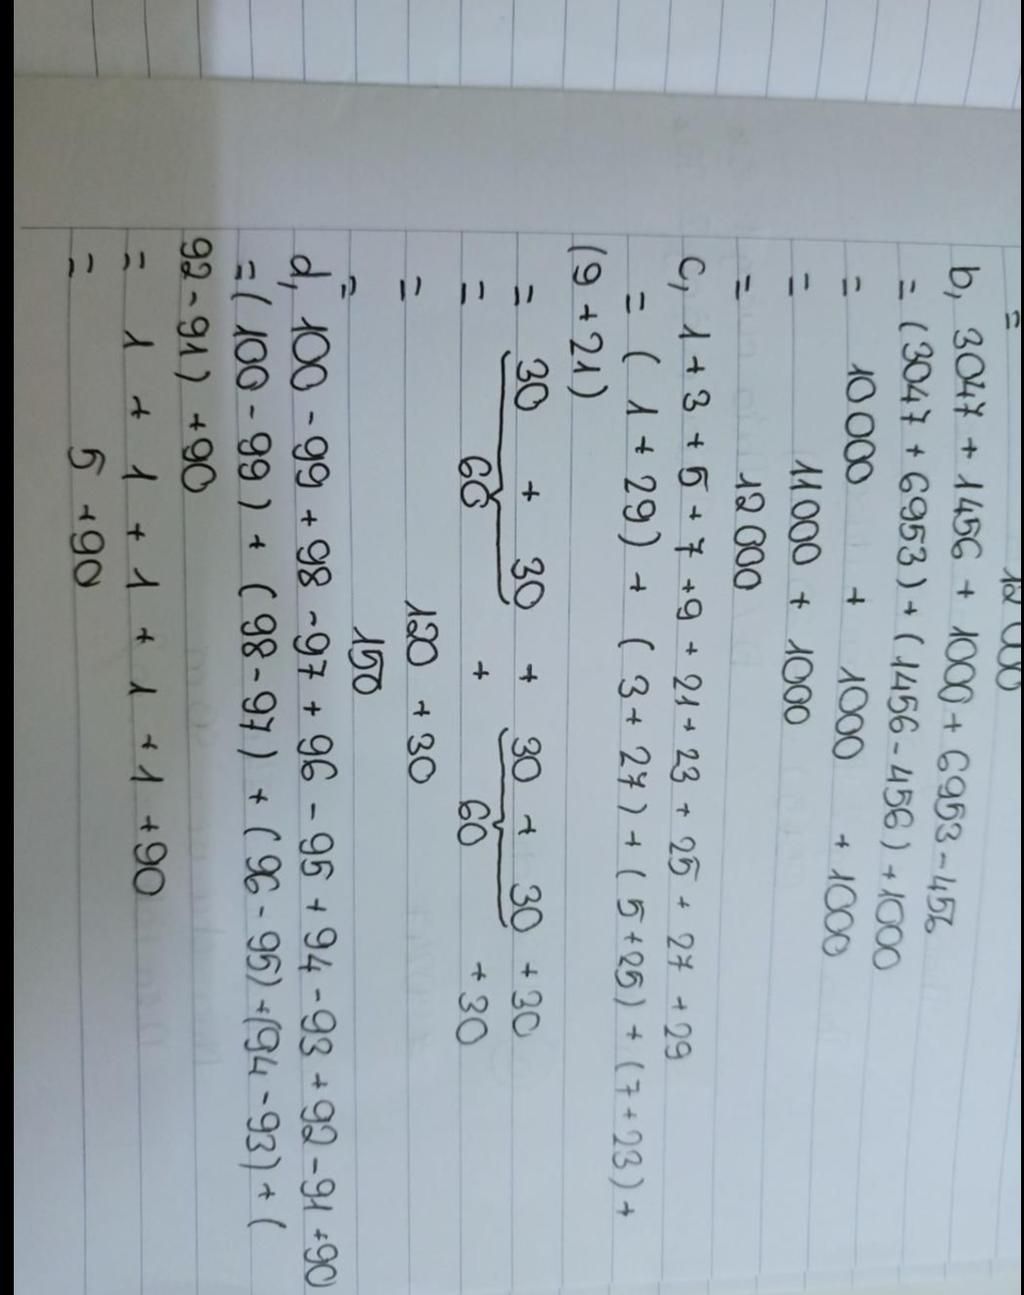 = 12 000
b, 3047 + 1456 + 1000 + 6953 - 456
= (3047 + 6953) + (1456 - 456) + 1000
= 10 000 + 1000 + 1000
= 11000 + 1000
= 12 000
c, 1 + 3 + 5 + 7 + 9 + 21 + 23 + 25 + 27 + 29
= ( 1 + 29) + ( 3 + 27) + ( 5 + 25) + (7 + 23) +
(9 + 21)
= 30 + 30 + 30 + 30 + 30
= 60 + 60 + 30
= 120 + 30
= 150
d, 100 - 99 + 98 - 97 + 96 - 95 + 94 - 93 + 92 - 91 + 90
= ( 100 - 99) + ( 98 - 97) + ( 96 - 95) + (94 - 93) + (
92 - 91) + 90
= 1 + 1 + 1 + 1 + 1 + 90
= 5 + 90